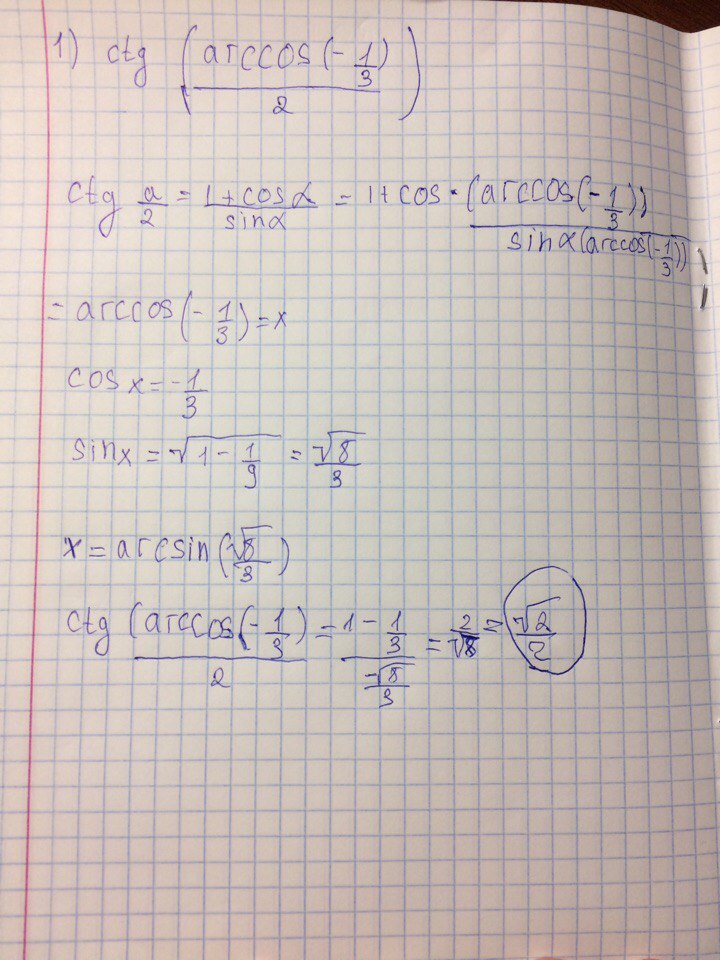 1) ctg (arccos(-1/3)/2)
ctg a/2 = 1+cosα/sinα = 1+cos·(arccos(-1/3))/sinα(arccos(-1/3))
= arccos(-1/3) = x
cos x = -1/3
sin x = √1 - 1/9 = √8/3
x = arcsin(√8/3)
ctg (arccos(-1/3)/2 = 1 - 1/3 / √8/3 = 2/√8 = √2/2